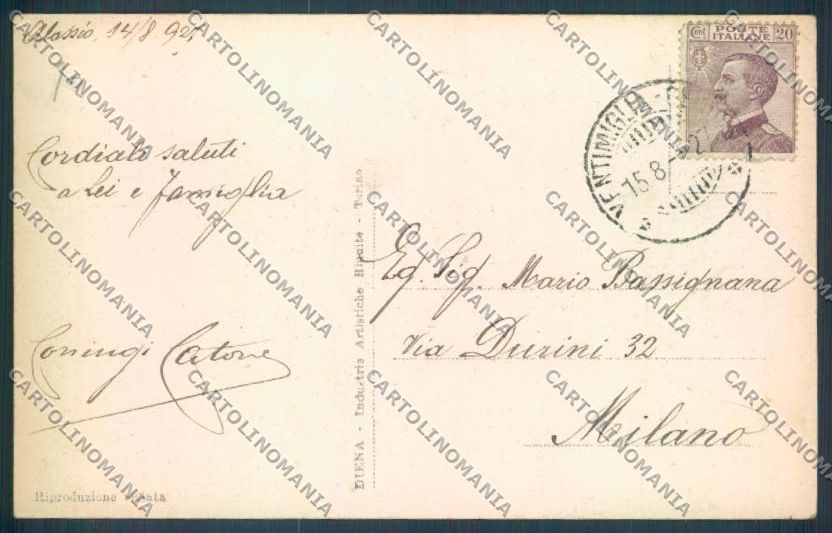 Alassio, 14/8 927
Cordiali saluti
a Lei e famiglia
Catone
Riproduzione Vietata
DIENA - Industrie Artistiche Riunite - Torino
Cent POSTE ITALIANE 20
VENTIMIGLIA
15.8
Eg. Sig. Mario Bassignana
Via Durini 32
Milano
CARTOLINOMANIA